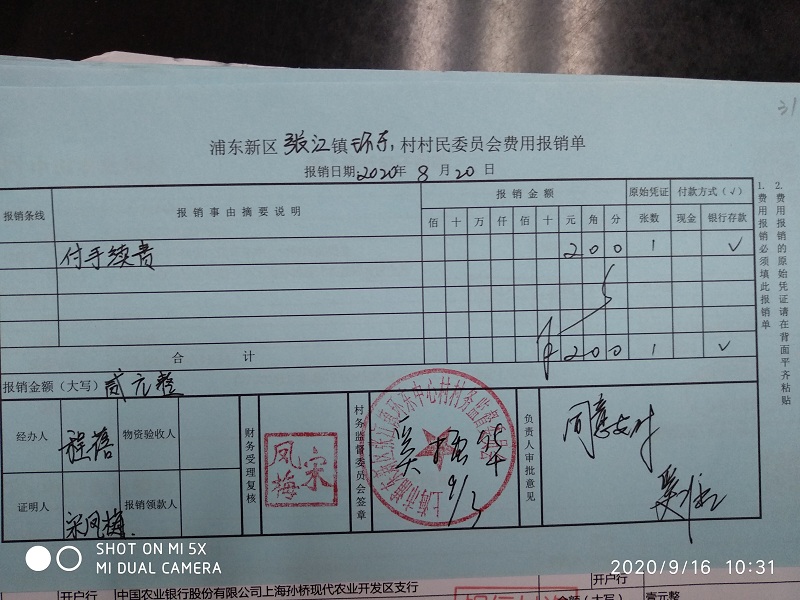 31
浦东新区张江镇环东村村民委员会费用报销单
报销日期2020年8月20日
报销条线 报销事由摘要说明 报销金额 原始凭证 付款方式（√）
佰 十 万 仟 佰 十 元 角 分 张数 现金 银行存款
付手续费 2 0 0 1 √
合计 ¥ 2 0 0 1 √
报销金额（大写）贰元整
经办人 程蓓 物资验收人
财务受理复核
宋凤梅
村务监督委员会签章
9/3
负责人审批意见
同意支付
证明人 宋凤梅 报销领款人
1.费用报销必须填此报销单
2.费用报销的原始凭证请在背面平齐粘贴
SHOT ON MI 5X
MI DUAL CAMERA
2020/9/16 10:31
开户行 中国农业银行股份有限公司上海孙桥现代农业开发区支行 开户行
金额（大写） 壹元整